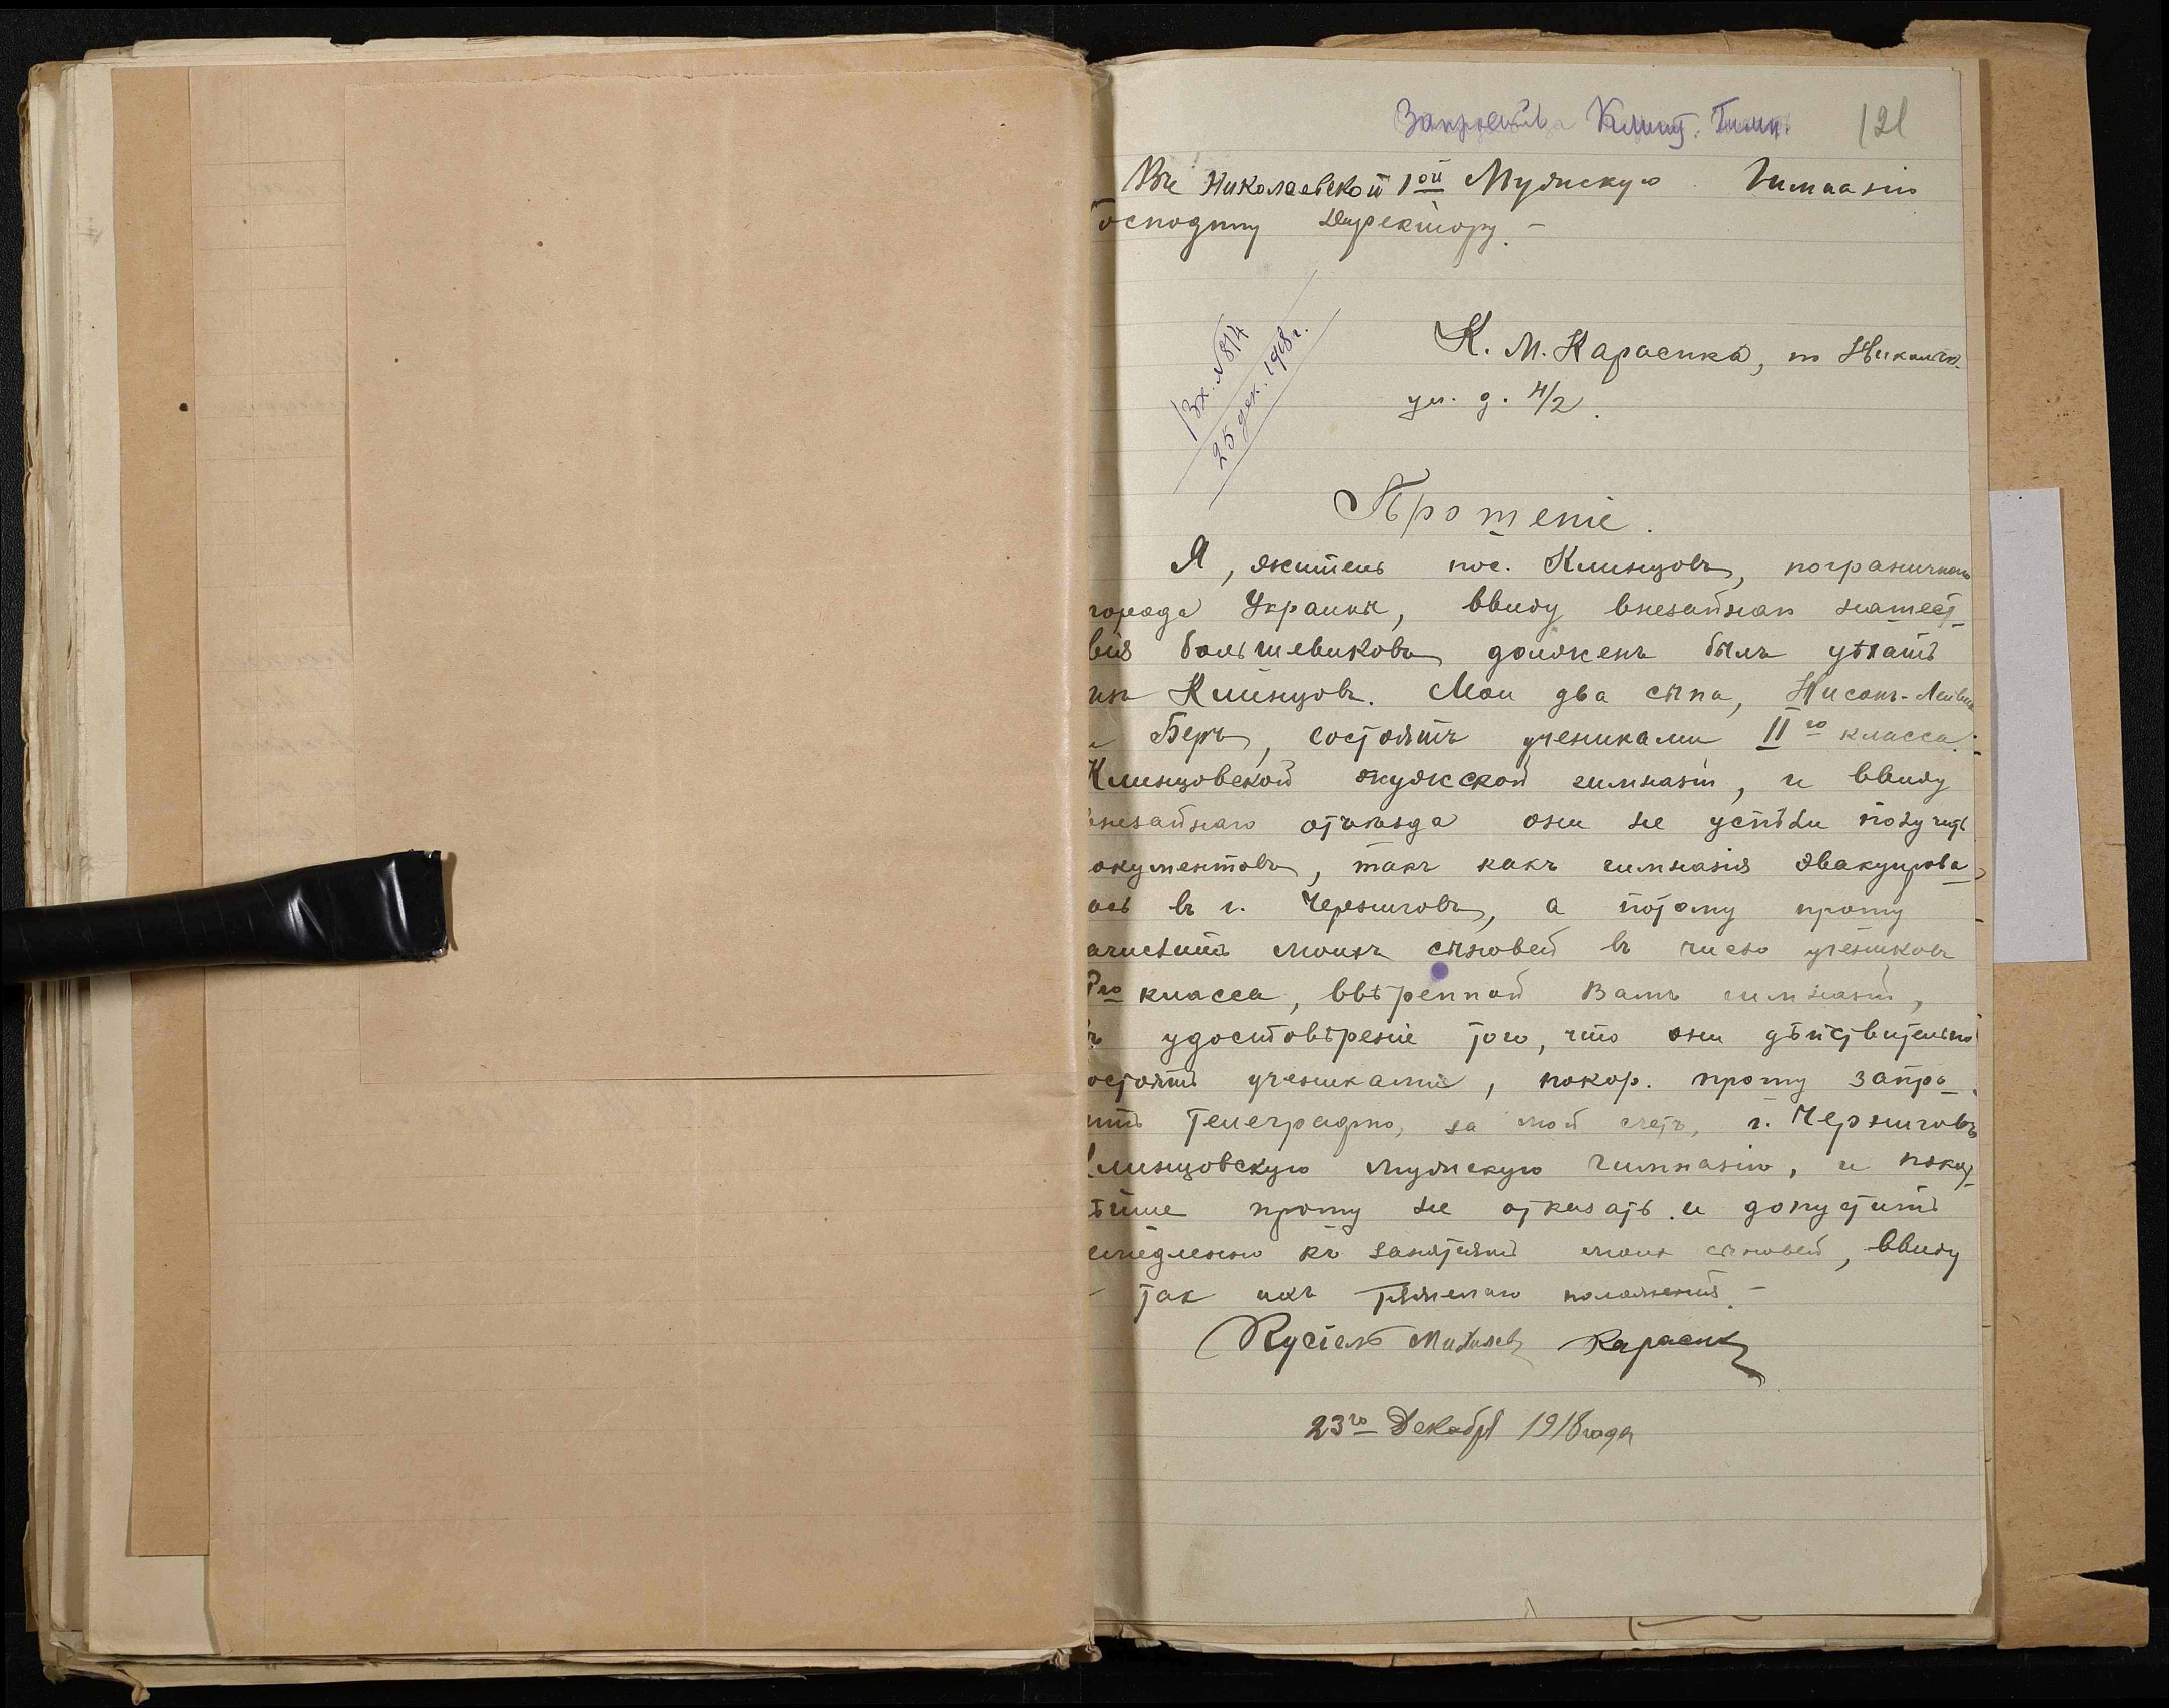 Клинц. Гимн. 121
Въ Николаевской 1ой Мужскую Гимназію
Господину Директору. –
Вх. № 814
25 дек. 1918 г.
К. М. Карасика, по
ул. д. 4/2.
Прошеніе.
Я, житель пос. Клинцовъ, пограничнаго
города Украины, ввиду внезапнаго нашест-
вія большевиковъ долженъ былъ уѣхать
изъ Клинцовъ. Мои два сына, Нисонъ-Лейба
и Беръ, состоятъ учениками II го класса
Клинцовской мужской гимназіи, и ввиду
внезапнаго отъѣзда они не успѣли получить
окументовъ, такъ какъ гимназія эвакуирова-
ась въ г. Черниговъ, а потому прошу
ачислить моихъ сыновей въ число учениковъ
го класса, ввѣренной Вамъ гимназіи,
ъ удостовѣреніе того, что они дѣйствительно
остоятъ учениками, покор. прошу запро-
ить телеграфно, за мой счетъ, г. Черниговъ
линцовскую мужскую гимназію, и покор-
ѣйше прошу не отказать и допустить
емедленно къ занятіямъ моихъ сыновей, ввиду
и такъ ихъ тяжелаго положенія. –
Кусіель Михелевъ Карасикъ
23го Декабря 1918 года